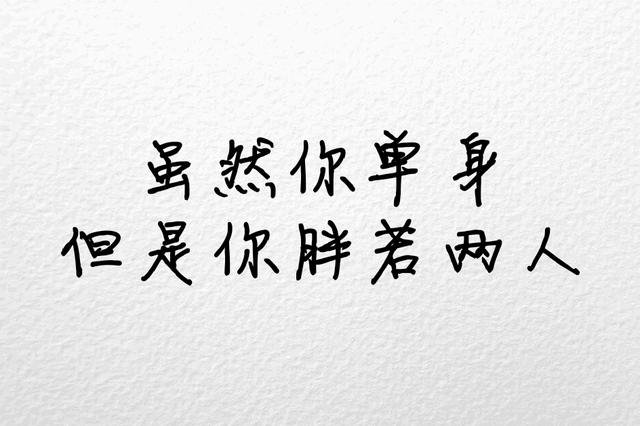 虽然你单身
但是你胖若两人